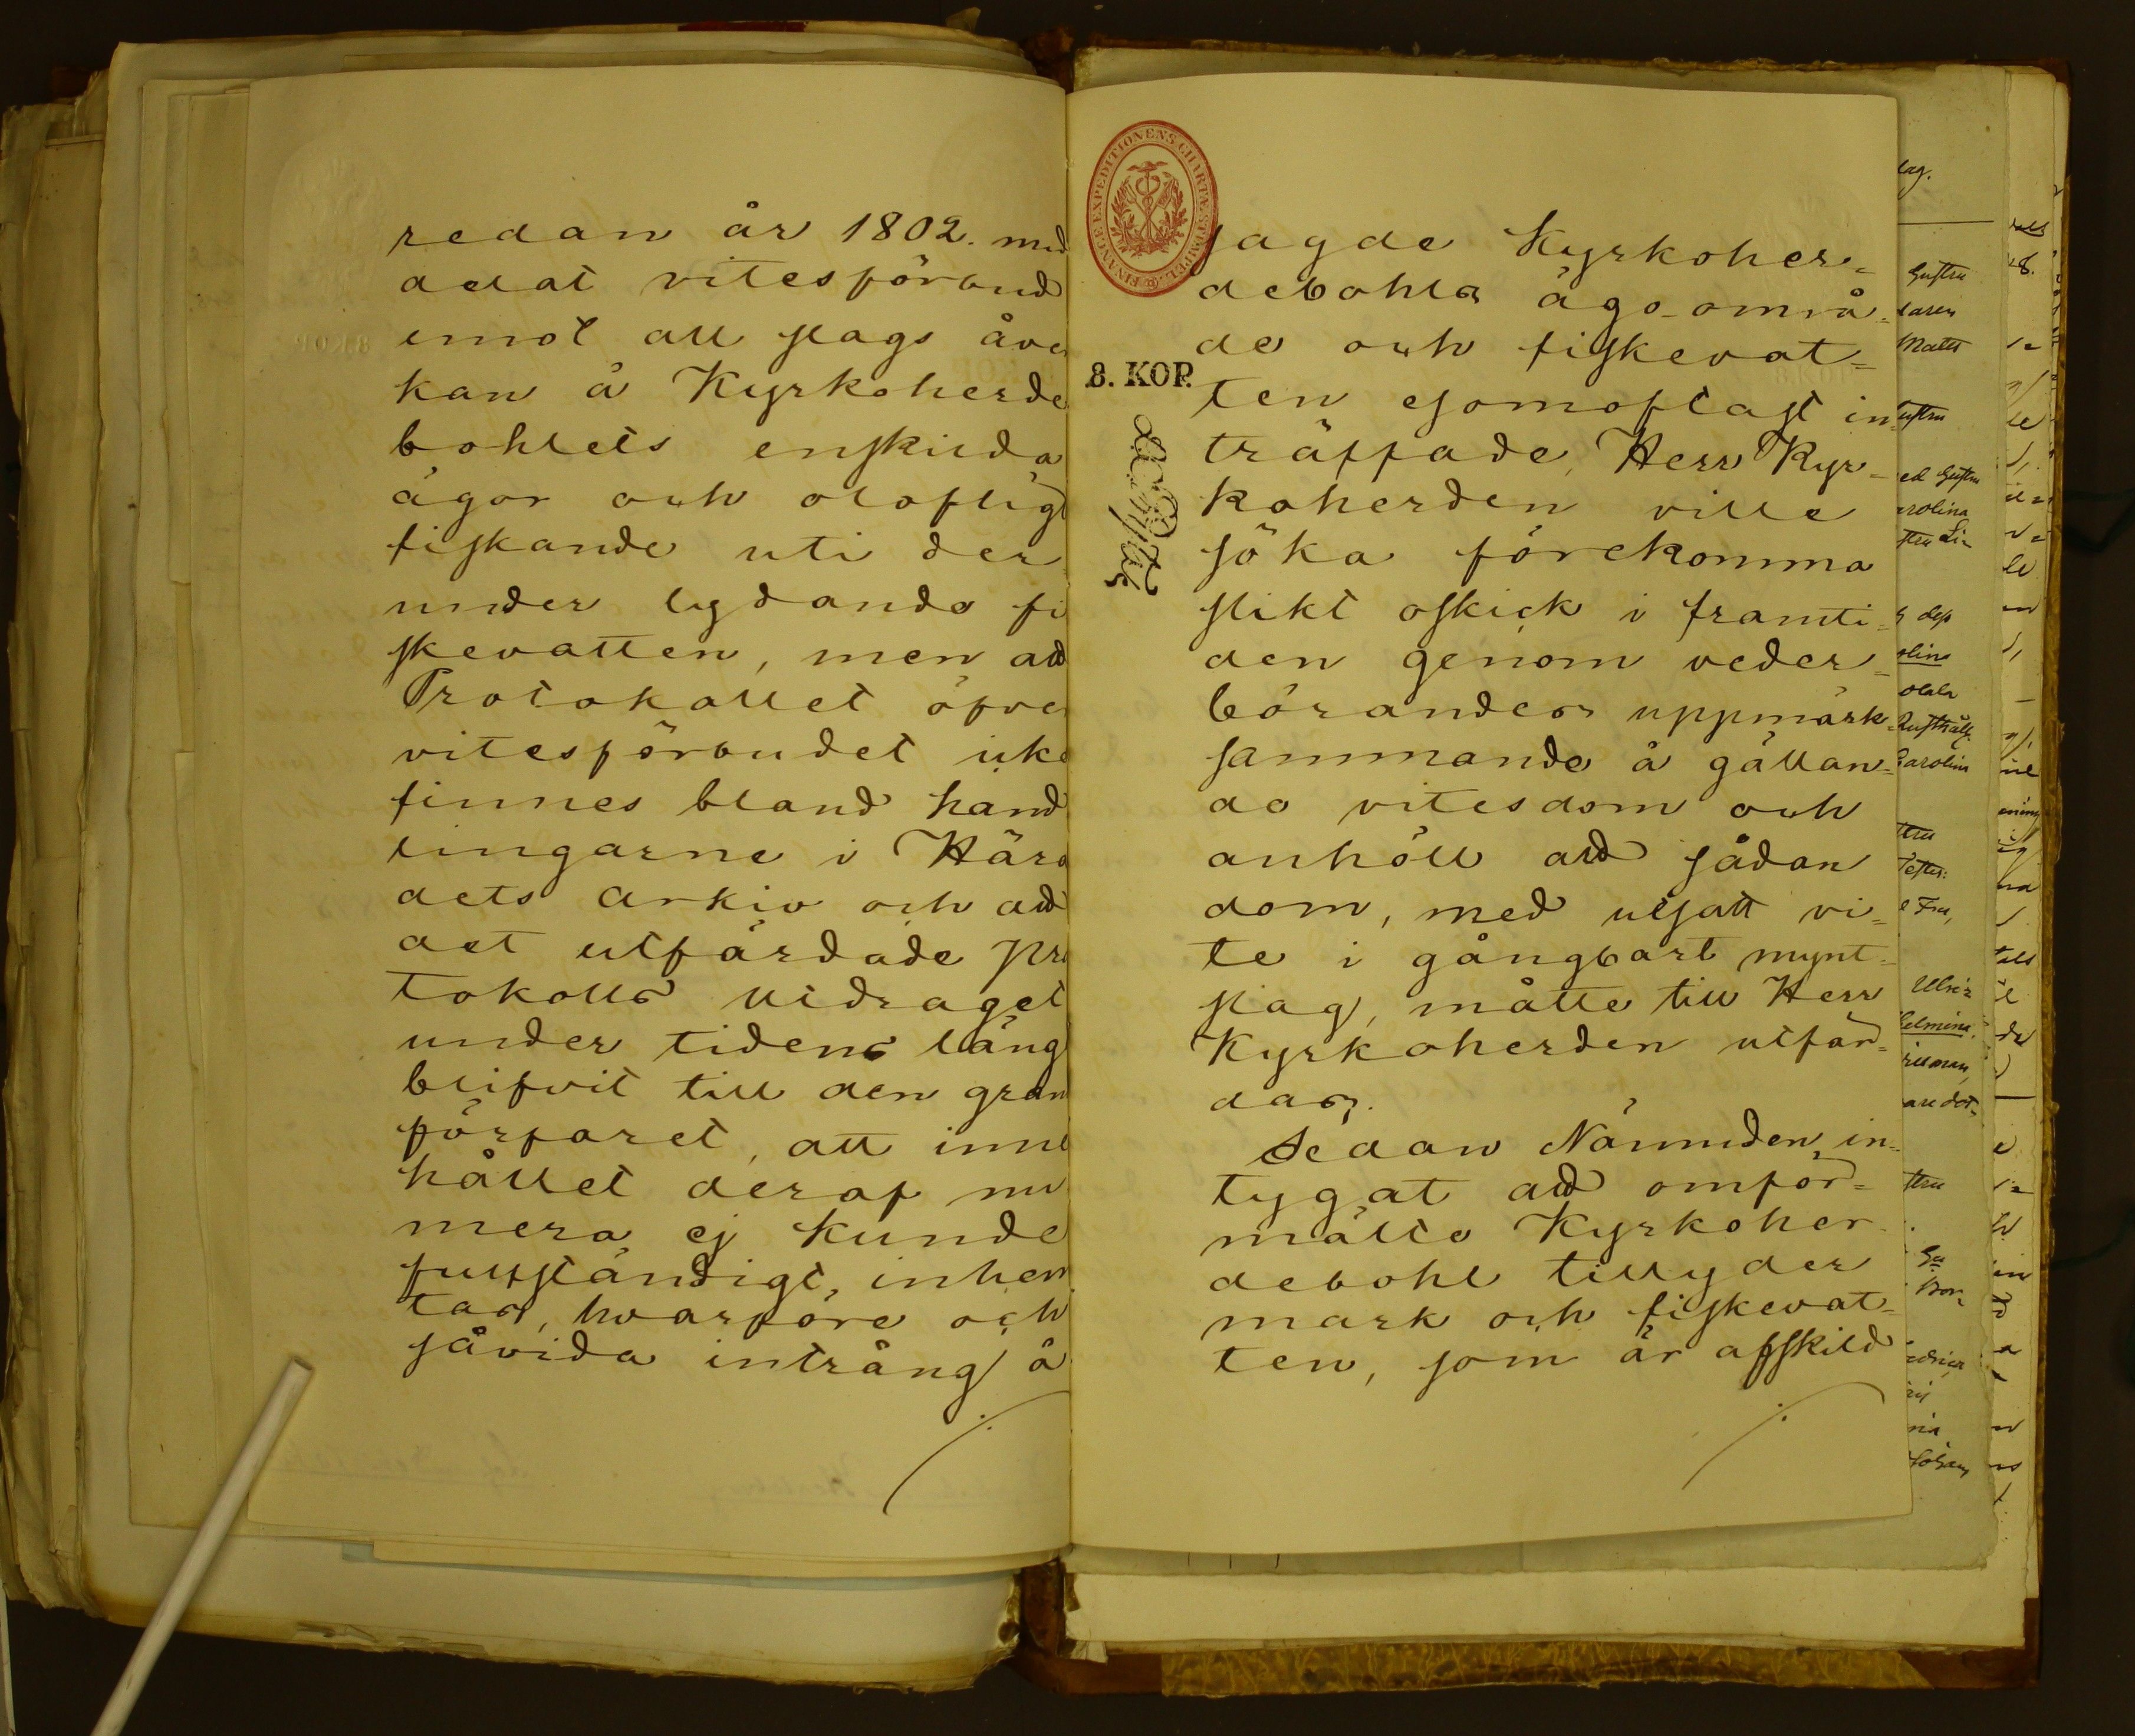 redan år 1802. med
delat vitesförbud
emot all slags åver
kan å Kyrkoherde
bohlets enskilda
ägor och olofligt
fiskande uti der
under lydande fi
skevatten, men att
Protokollet öfver
vitesförbudet icke
finnes bland hand
lingarne i Hära
dets arkiv och att
det utfärdade pro
tokolls utdraget
under tidens läng
blifvit till den gran
förfaret, att inne
hållet deraf nu
mera ej kunde
fullständigt, inhem
tas, hvarföre och
såvida intrång å
FINANCE EXPEDITIONENS CHARTÆ STÆMPEL
8. KOP.
sagde Kyrkoher=
debohls ägo-områ=
de och fiskevat=
ten esomoftast in=
träffade, Herr Kyr=
koherden ville
söka förekomma
slikt oskick i framti=
den genom veder=
börandes uppmärk=
sammande å gällan=
de vitesdom och
anhöll att sådan
dom, med utsatt vi=
te i gångbart mynt=
slag, måtte till Herr
Kyrkoherden utfär=
das.
Sedan Nämnden in=
tygat att omför=
mälte Kyrkoher
debohl tillyder
mark och fiskevat=
ten, som är afskild
./.
./.